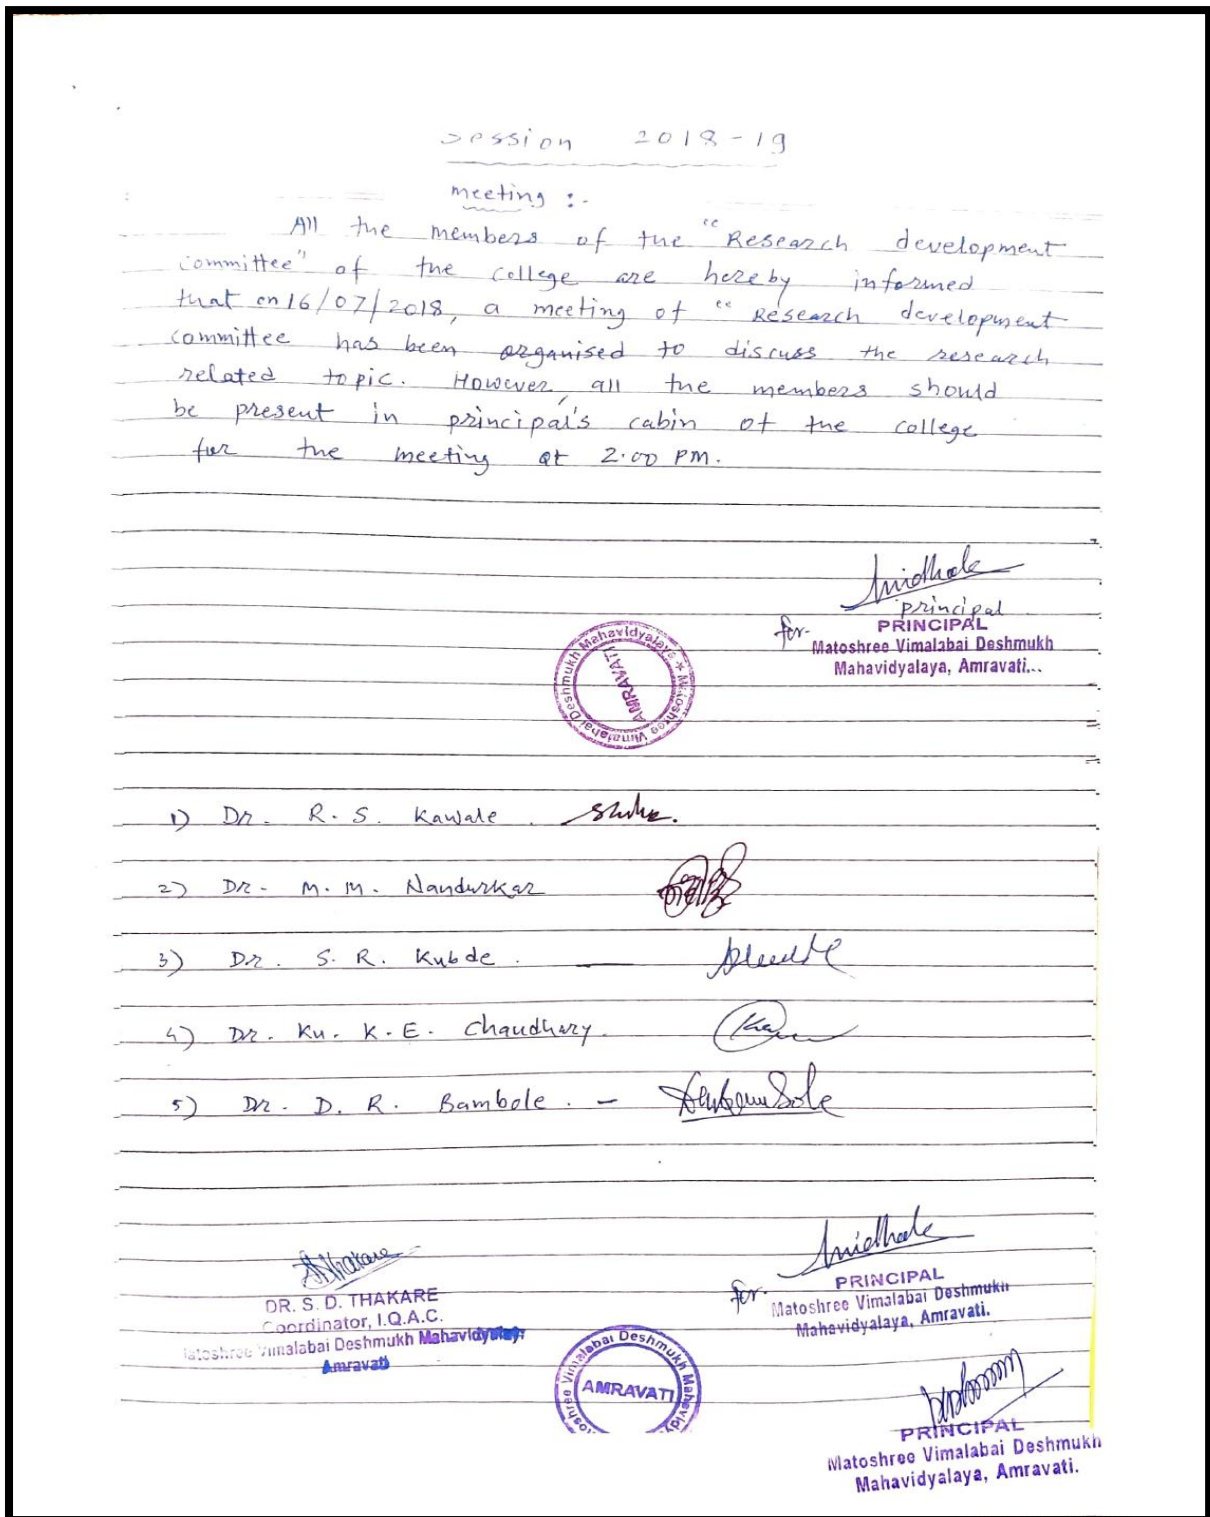 Session 2018-19
meeting :-
All the members of the "Research development
committee" of the college are hereby informed
that on 16/07/2018, a meeting of "Research development
committee has been organised to discuss the research
related topic. However, all the members should
be present in principal's cabin of the college
for the meeting at 2.00 PM.
principal
for- PRINCIPAL
Matoshree Vimalabai Deshmukh
Mahavidyalaya, Amravati...
Matoshree Vimalabai Deshmukh Mahavidyalaya *
AMRAVATI
1) Dr. R. S. Kawale.
2) Dr. M. M. Nandurkar
3) Dr. S. R. Kubde. —
4) Dr. Ku. K. E. Chaudhary.
5) Dr. D. R. Bambole. -
DR. S. D. THAKARE
Coordinator, I.Q.A.C.
Matoshree Vimalabai Deshmukh Mahavidyalay,
Amravati
for- PRINCIPAL
Matoshree Vimalabai Deshmukh
Mahavidyalaya, Amravati.
toshree Vimalabai Deshmukh Mahavidy
AMRAVATI
PRINCIPAL
Matoshree Vimalabai Deshmukh
Mahavidyalaya, Amravati.